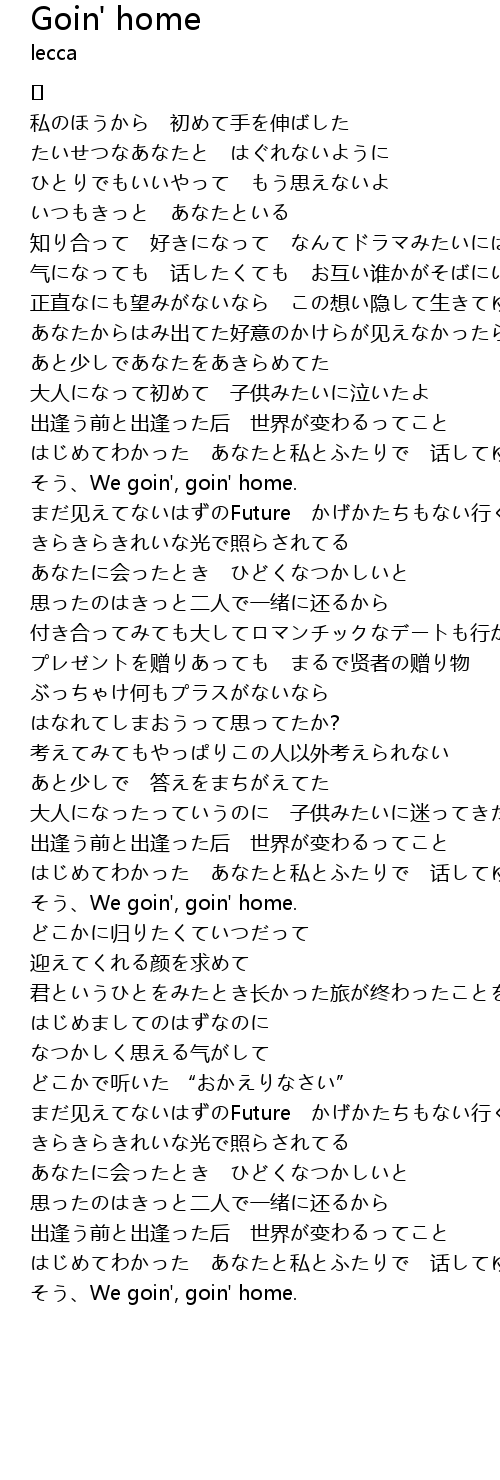 Goin' home
lecca
[]
私のほうから　初めて手を伸ばした
たいせつなあなたと　はぐれないように
ひとりでもいいやって　もう思えないよ
いつもきっと　あなたといる
知り合って　好きになって　なんてドラマみたいには
气になっても　話したくても　お互い谁かがそばにい
正直なにも望みがないなら　この想い隠して生きてゆ
あなたからはみ出てた好意のかけらが见えなかったら
あと少しであなたをあきらめてた
大人になって初めて　子供みたいに泣いたよ
出逢う前と出逢った后　世界が变わるってこと
はじめてわかった　あなたと私とふたりで　話してゆ
そう、We goin', goin' home.
まだ见えてないはずのFuture　かげかたちもない行く
きらきらきれいな光で照らされてる
あなたに会ったとき　ひどくなつかしいと
思ったのはきっと二人で一绪に还るから
付き合ってみても大してロマンチックなデートも行か
プレゼントを赠りあっても　まるで贤者の赠り物
ぶっちゃけ何もプラスがないなら
はなれてしまおうって思ってたか?
考えてみてもやっぱりこの人以外考えられない
あと少しで　答えをまちがえてた
大人になったっていうのに　子供みたいに迷ってきた
出逢う前と出逢った后　世界が变わるってこと
はじめてわかった　あなたと私とふたりで　話してゆ
そう、We goin', goin' home.
どこかに归りたくていつだって
迎えてくれる颜を求めて
君というひとをみたとき长かった旅が终わったことを
はじめましてのはずなのに
なつかしく思える气がして
どこかで听いた　“おかえりなさい”
まだ见えてないはずのFuture　かげかたちもない行く
きらきらきれいな光で照らされてる
あなたに会ったとき　ひどくなつかしいと
思ったのはきっと二人で一绪に还るから
出逢う前と出逢った后　世界が变わるってこと
はじめてわかった　あなたと私とふたりで　話してゆ
そう、We goin', goin' home.